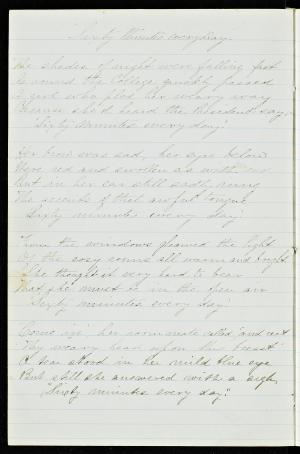 "Sixty Minutes every day."
The shades of night were falling fast
As round the College quickly passed
A girl who plod her weary way
Because she'd heard the President say
"Sixty Minutes every day."
Her brow was sad, her eyes below
Were red and swollen as with
But in her ear still sadly rung
The accents of that awful tongue
Sixty minutes every day."
From the windows gleamed the light
Of the cosy rooms all warm and bright
She thought it very hard to bear
That she must in the open air
"Sixty minutes every day."
"Come in", her roommate called, "and rest
Thy weary head upon this breast"
A tear stood in her mild blue eye
But still she answered with a sigh,
"Sixty minutes every day."